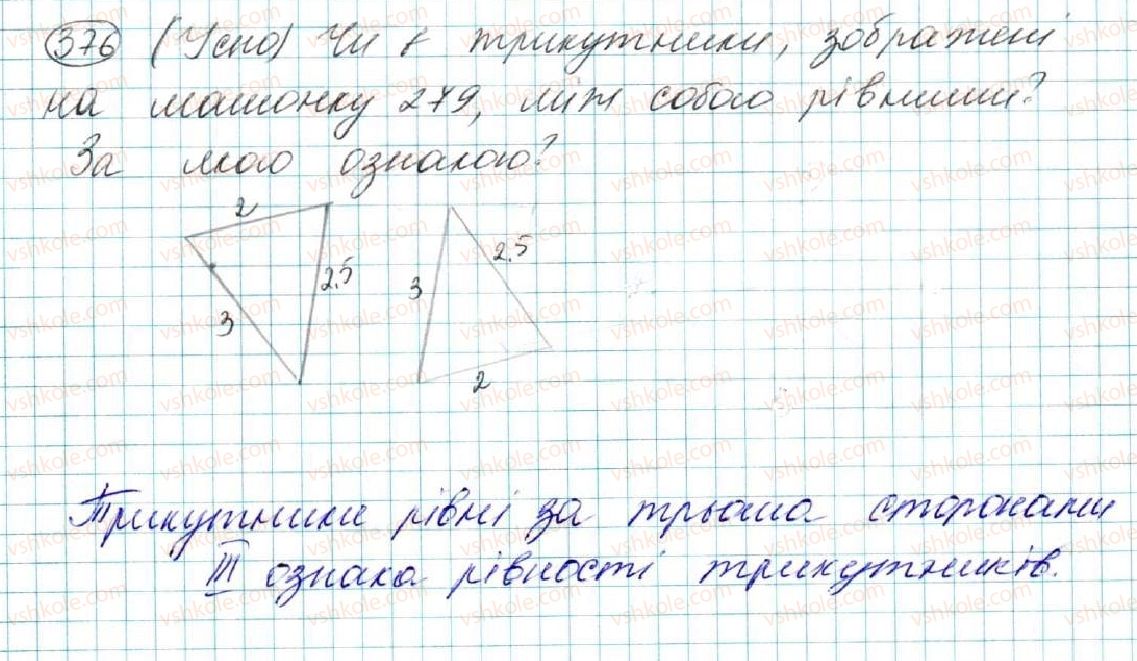 376 (Усно) Чи є трикутники, зображені
на малюнку 279, між собою рівними?
За якою ознакою?
2
2,5
3
3
2,5
2
Трикутники рівні за трьома сторонами
III ознака рівності трикутників.
vshkole.com